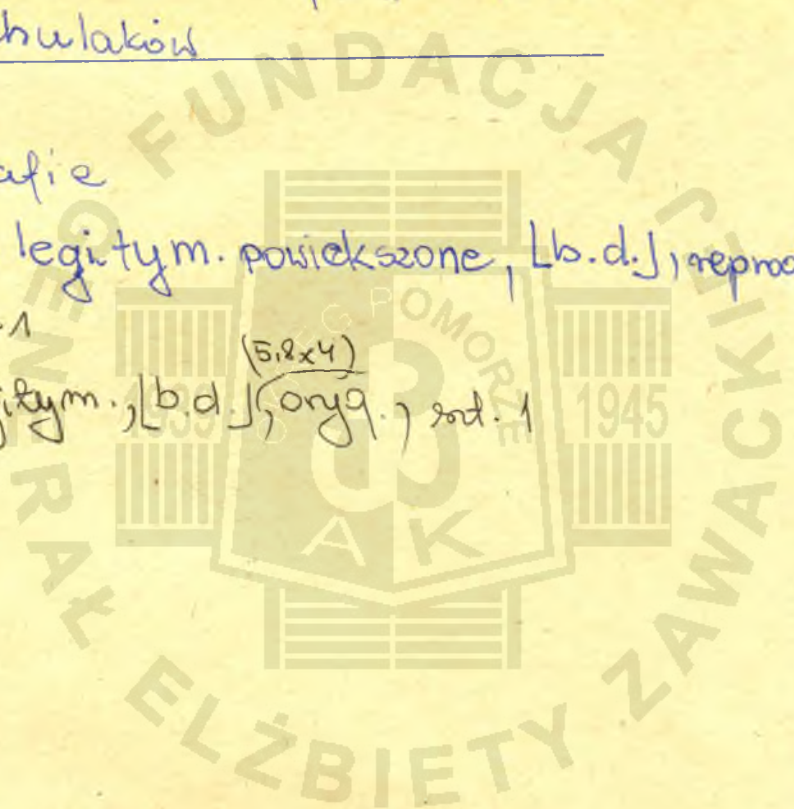 hulaków
afie
legitym. powiększone, [b.d.], reprod
.1
(5,8x4)
itym., [b.d.], oryg., szt. 1
FUNDACJA GENERAŁ ELŻBIETY ZAWACKIEJ
OKRĘG POMORZE
1939 1945
AK